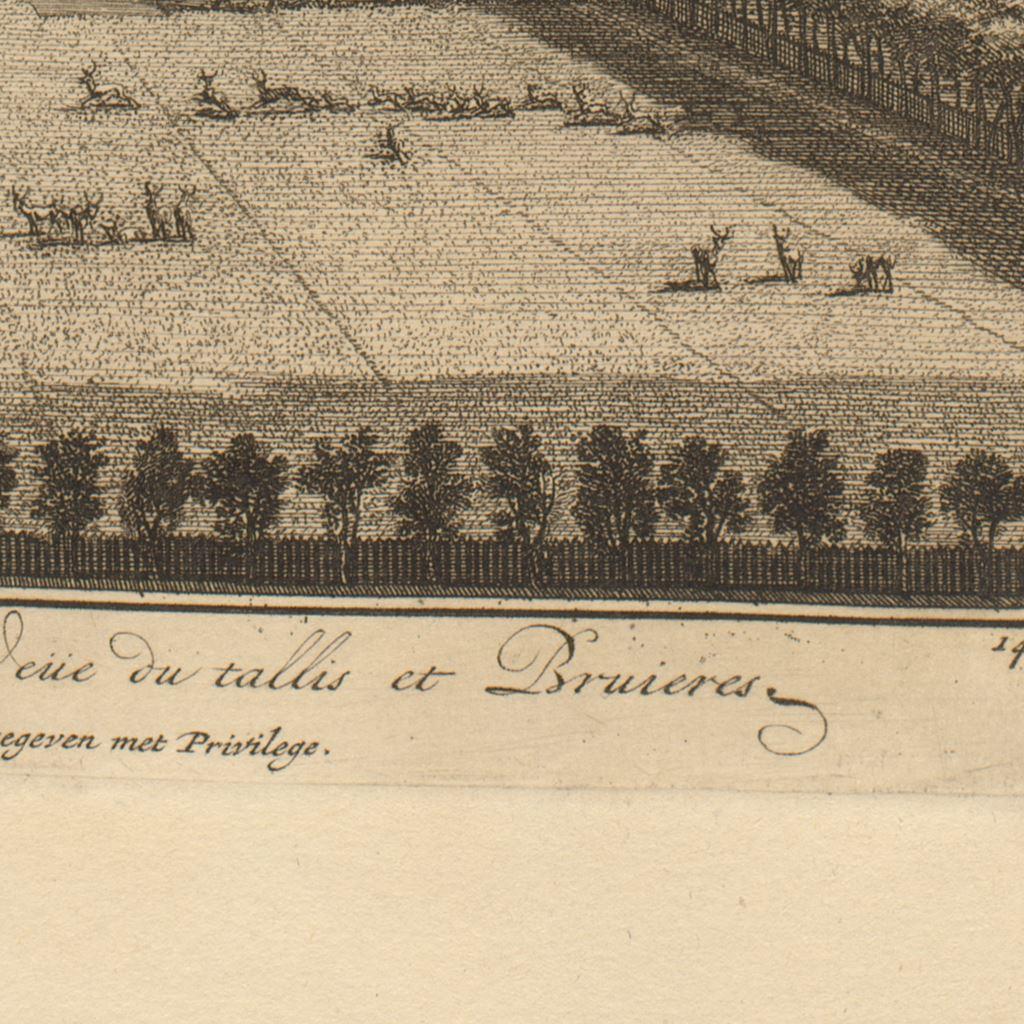 Veüe du tallis et Bruieres.
14
egeven met Privilege.